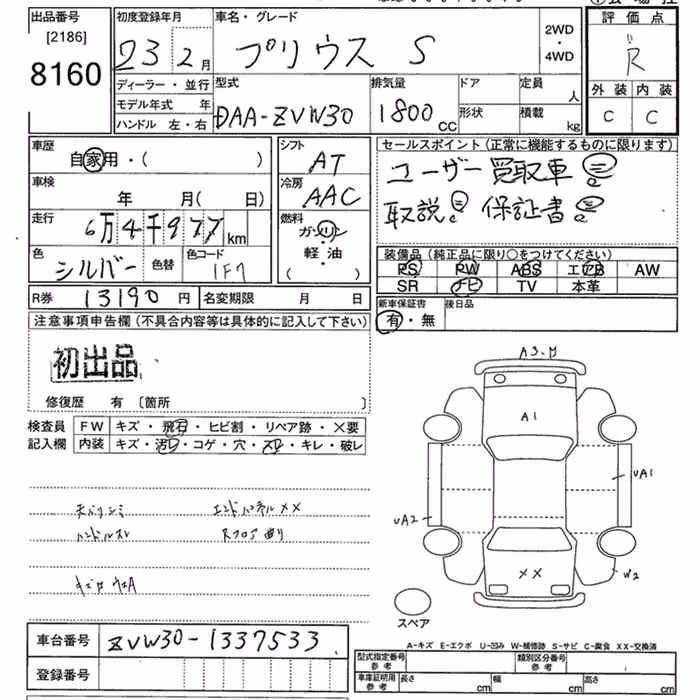 出品番号
[2186]
8160
初度登録年月
23 2月
車名・グレード
プリウス S
2WD
・
4WD
評価点
R
外装 内装
C C
ディーラー・並行
モデル年式 年
ハンドル 左・右
型式
DAA-ZVW30
排気量
1800 CC
ドア
形状
定員
人
積載
kg
車歴
自家用・( )
車検
年 月( 日)
走行
6万4千977km
色
シルバー
色替
色コード
1F7
シフト
AT
冷房
AAC
燃料
ガソリン
軽・油
( )
セールスポイント(正常に機能するものに限ります)
ユーザー買取車
取説 保証書
装備品(純正品に限り○をつけてください)
PS PW ABS エアB AW
SR ナビ TV 本革
R券 13190円 名変期限 月 日
新車保証書
有・無
後日品
注意事項申告欄(不具合内容等は具体的に記入して下さい)
初出品
修復歴 有 〔箇所 〕
検査員
記入欄
FW キズ・飛石・ヒビ割・リペア跡・×要
内装 キズ・汚レ・コゲ・穴・スレ・キレ・破レ
天バリシミ エンドパネルXX
ハンドルスレ Rフロア曲り
A1
UA1
UA2
W2
XX
スペア
A-キズ E-エクボ U-凹み W-補修跡 S-サビ C-腐食 XX-交換済
車台番号 ZVW30-1337533
登録番号
型式指定番号
参考
類別区分番号
参考
車庫証明用
参考
長さ cm 幅 cm 高さ cm